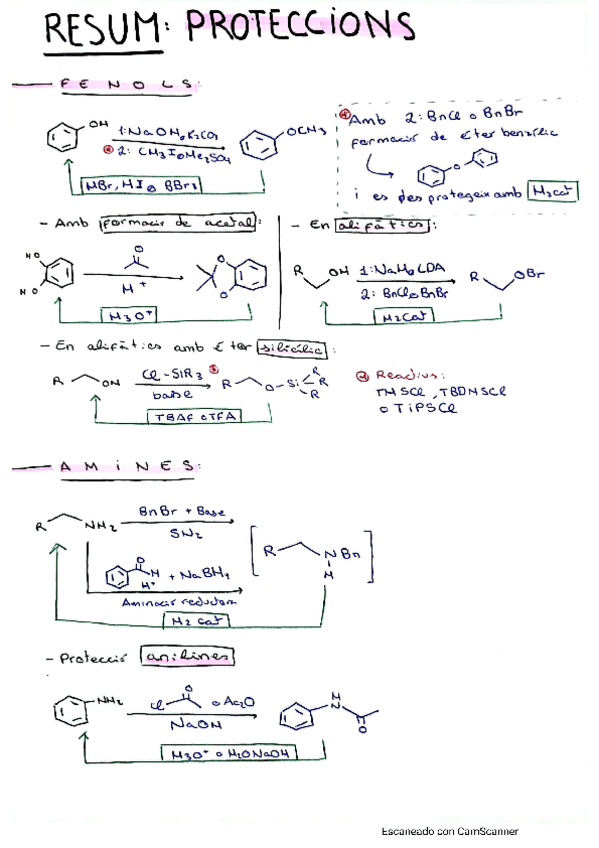 RESUM: PROTECCIONS
FENOLS:
OH
1: NaOH o K2CO3
2: CH3I o Me2SO4
OCH3
HBr, HI o BBr3
Amb 2: BnCl o BnBr
formació de èter benzílic
O
i es desprotegeix amb H2cat
- Amb formació de acetal:
HO
HO
O
H+
O
O
H3O+
- En alifàtics:
R
OH
1: NaH o LDA
2: BnCl o BnBr
R
OBr
H2Cat
- En alifàtics amb èter silicílic:
R
OH
Cl-SiR3
base
R
O-Si
R
R
R
TBAF o TFA
Reactius:
TMSCl, TBDMSCl
o TiPSCl
AMiNES:
R
NH2
BnBr + Base
SN2
O
H
H+
+ NaBH4
Aminació reductora
R
N Bn
H
H2 cat
- Protecció anilines
NH2
Cl
O
o Ac2O
NaOH
H
N
O
H3O+ o H2O NaOH
Escaneado con CamScanner